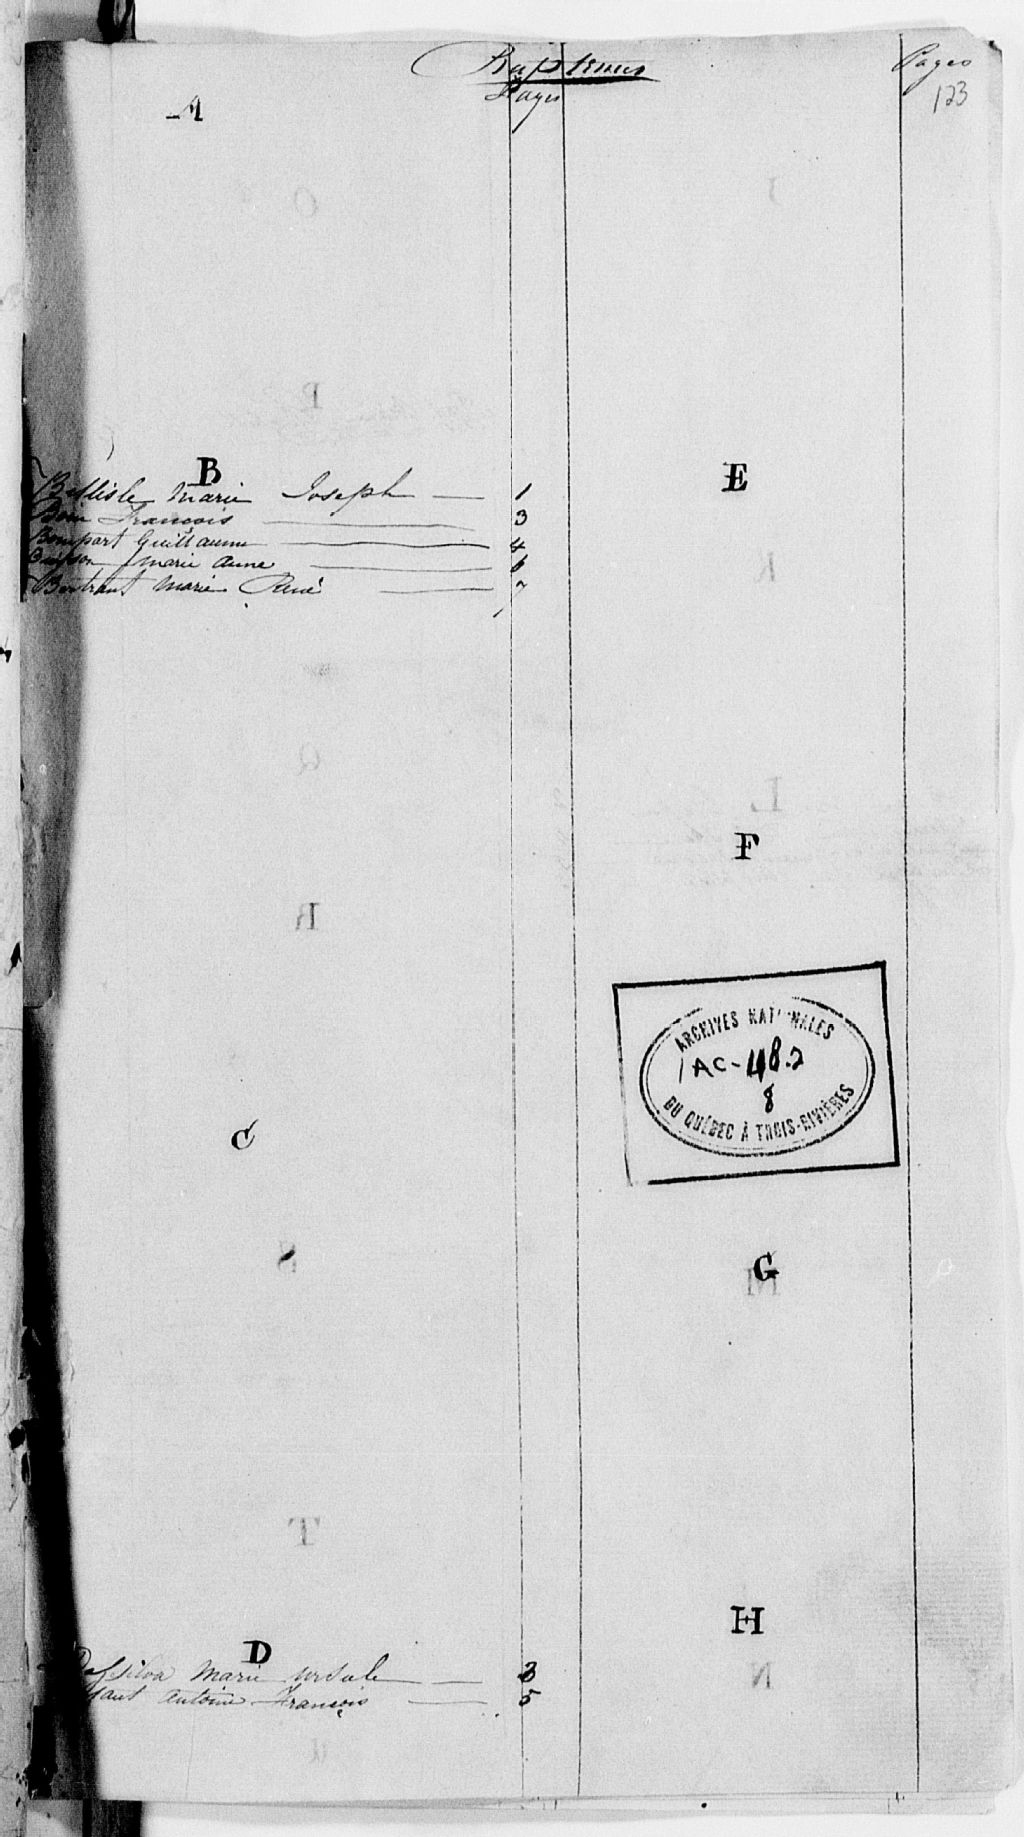 Baptemes
Pages
Pages
123
A
B
Bellisle Marie Joseph 1
Boin François 3
Bompart Guillaume 4
Buisson Marie Anne 6
Bertrant Marie René 7
C
D
Dassilva Marie Ursule 3
Antoine François 5
E
F
ARCHIVES NATIONALES
1AC-48.2
8
DU QUÉBEC À TROIS-RIVIÈRES
G
H